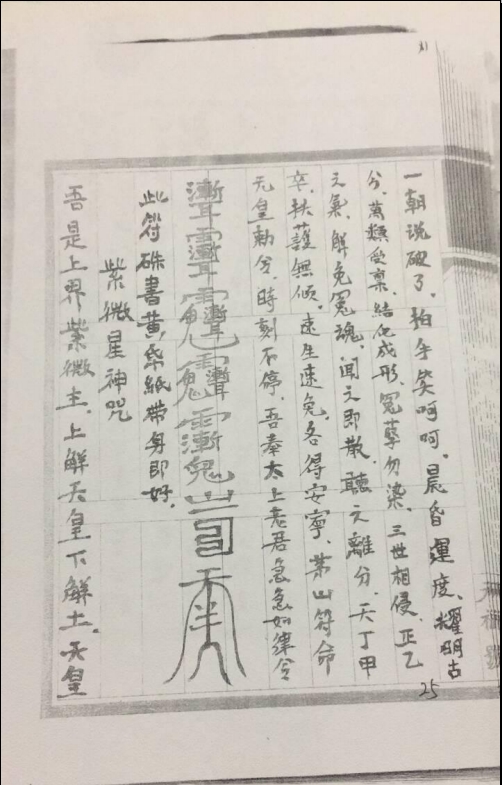 一朝说破了．拍手笑呵呵．晨昏運度、耀明古
兮．萬類受稟．結化成形．冤孽勿染．三世相侵．正乙
之氣．解免冤魂．闻之即散．聽之離分．天丁甲
卒．扶護無倾．速生速兔．各得安寧．茅山符命
元皇勅令．時刻不停．吾奉太上老君急急如律令
此符硃書黄表紙带身即好．
紫微星神咒
吾是上界紫微主．上解天皇下解土．天皇
25